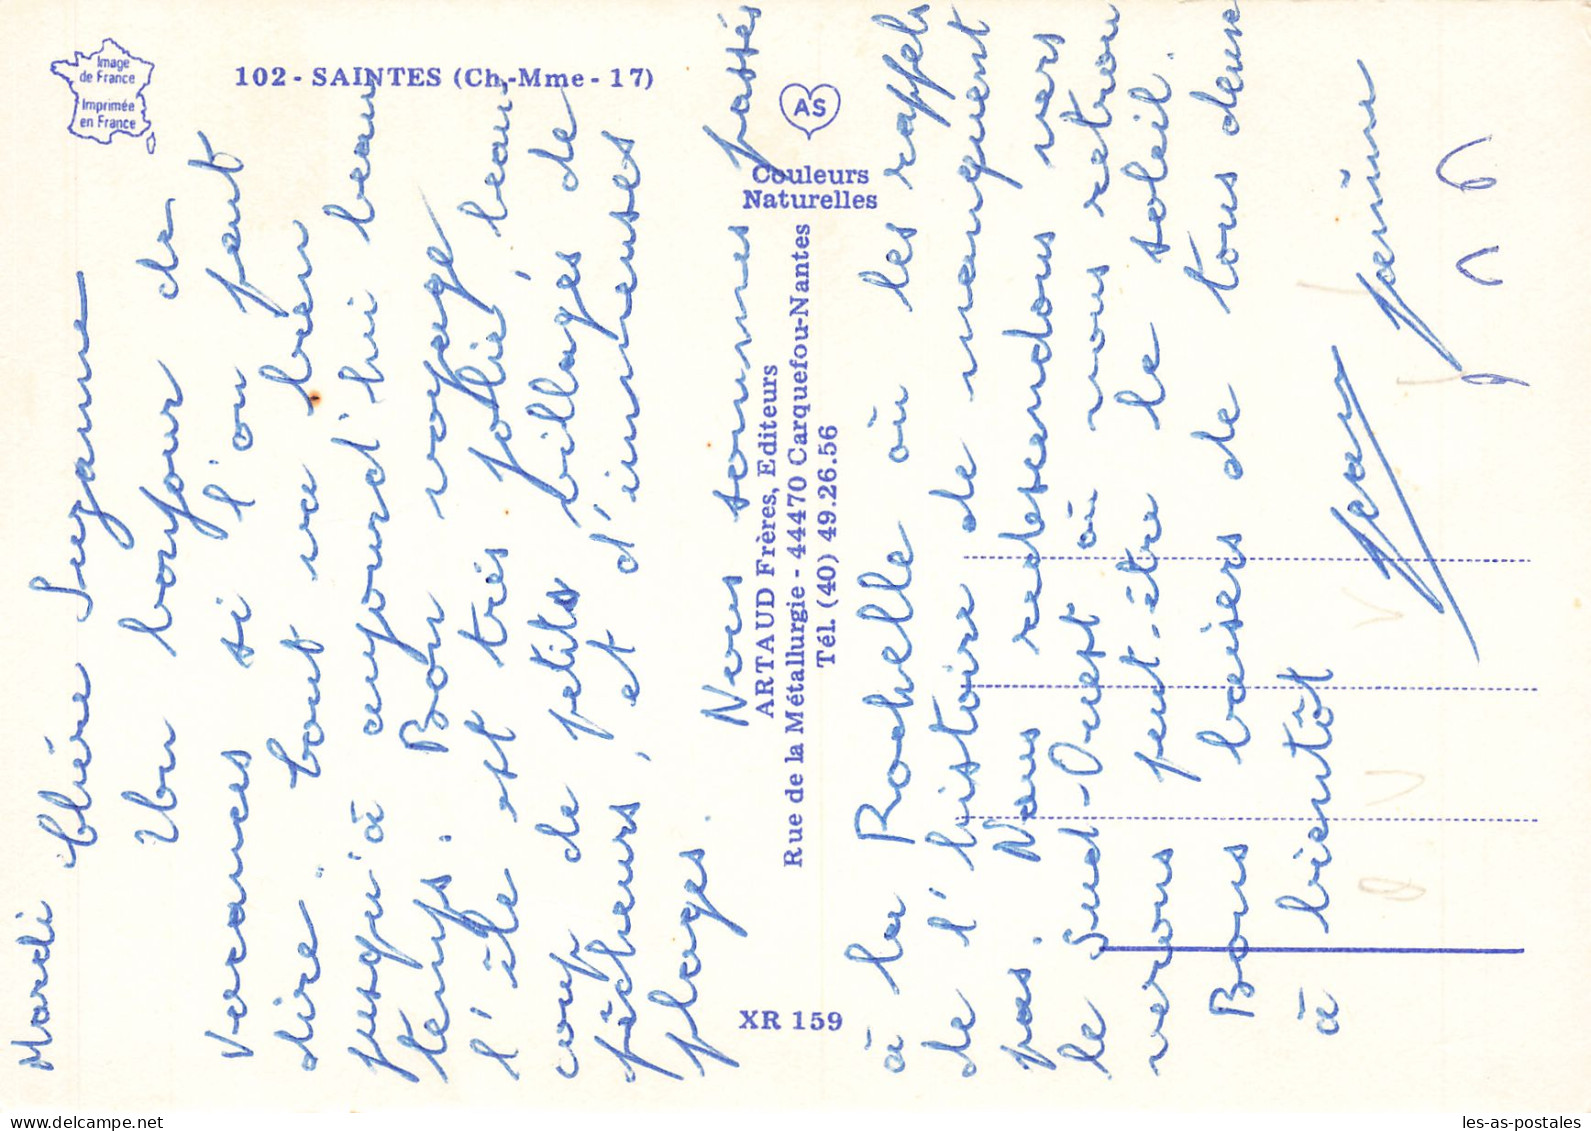 Image
de France
Imprimée
en France
102 - SAINTES (Ch.-Mme - 17)
AS
Couleurs
Naturelles
ARTAUD Frères, Editeurs
Rue de la Métallurgie - 44470 Carquefou-Nantes
Tél. (40) 49.26.56
XR 159
Mardi
Chère Suzanne
Un bonjour de
vacances si l'on peut
dire. Tout va bien
jusqu'à aujourd'hui beau
temps. Bon voyage
l'île est très jolie, beau
coup de petits villages de
pêcheurs, et d'immenses
plages.
Nous sommes passés
à la Rochelle où les rappels
de l'histoire de manquent
pas. Nous redescendons vers
le Sud-Ouest où nous retrou
verons peut-être le soleil.
Bons baisers de tous deux
à bientôt
Jean Janine
les-as-postales.com